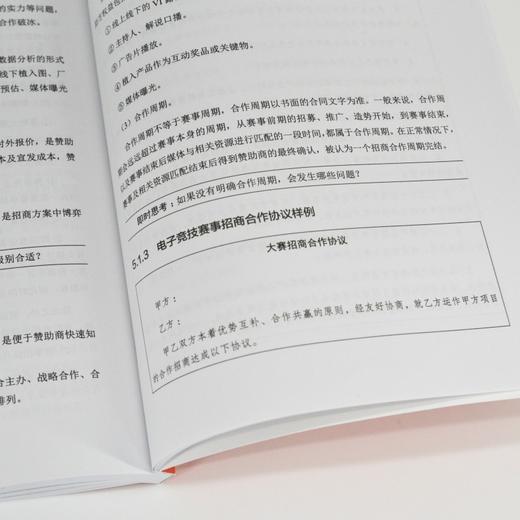 的实力等问题，
合作破冰。
数据分析的形式
线下植入图、广
预估、媒体曝光
对外报价，是赞助
本及宣发成本，赞
是招商方案中博弈
级别合适？
是便于赞助商快速知
合主办、战略合作、合
排列。
①线上线下的 VI
②主持人、解说口播。
③广告片播放。
④植入产品作为互动奖品或关键物。
⑤媒体曝光。
（3）合作周期。
合作周期不等于赛事周期，合作周期以书面的合同文字为准。一般来说，合作周
期会远远超过赛事本身的周期，从赛事前期的招募、推广、造势开始，到赛事结束，
以及赛事结束后媒体与相关资源进行匹配的一段时间，都属于合作周期。在正常情况下，
赛事及相关资源匹配结束后得到赞助商的最终确认，被认为一个招商合作周期完结。
即时思考：如果没有明确合作周期，会发生哪些问题？
5.1.3 电子竞技赛事招商合作协议样例
大赛招商合作协议
甲方：
乙方：
甲乙双方本着优势互补、合作共赢的原则，经友好协商，就乙方运作甲方项目
的合作招商达成以下协议。